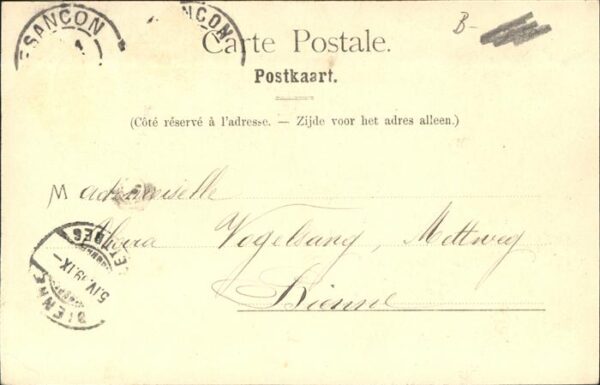 BESANÇON
ANÇON
B-
Carte Postale.
Postkaart.
(Côté réservé à l'adresse. — Zijde voor het adres alleen.)
Mademoiselle
Vogelsang, Mettweg
Bienne
BIENNE
5.IV.
IX-